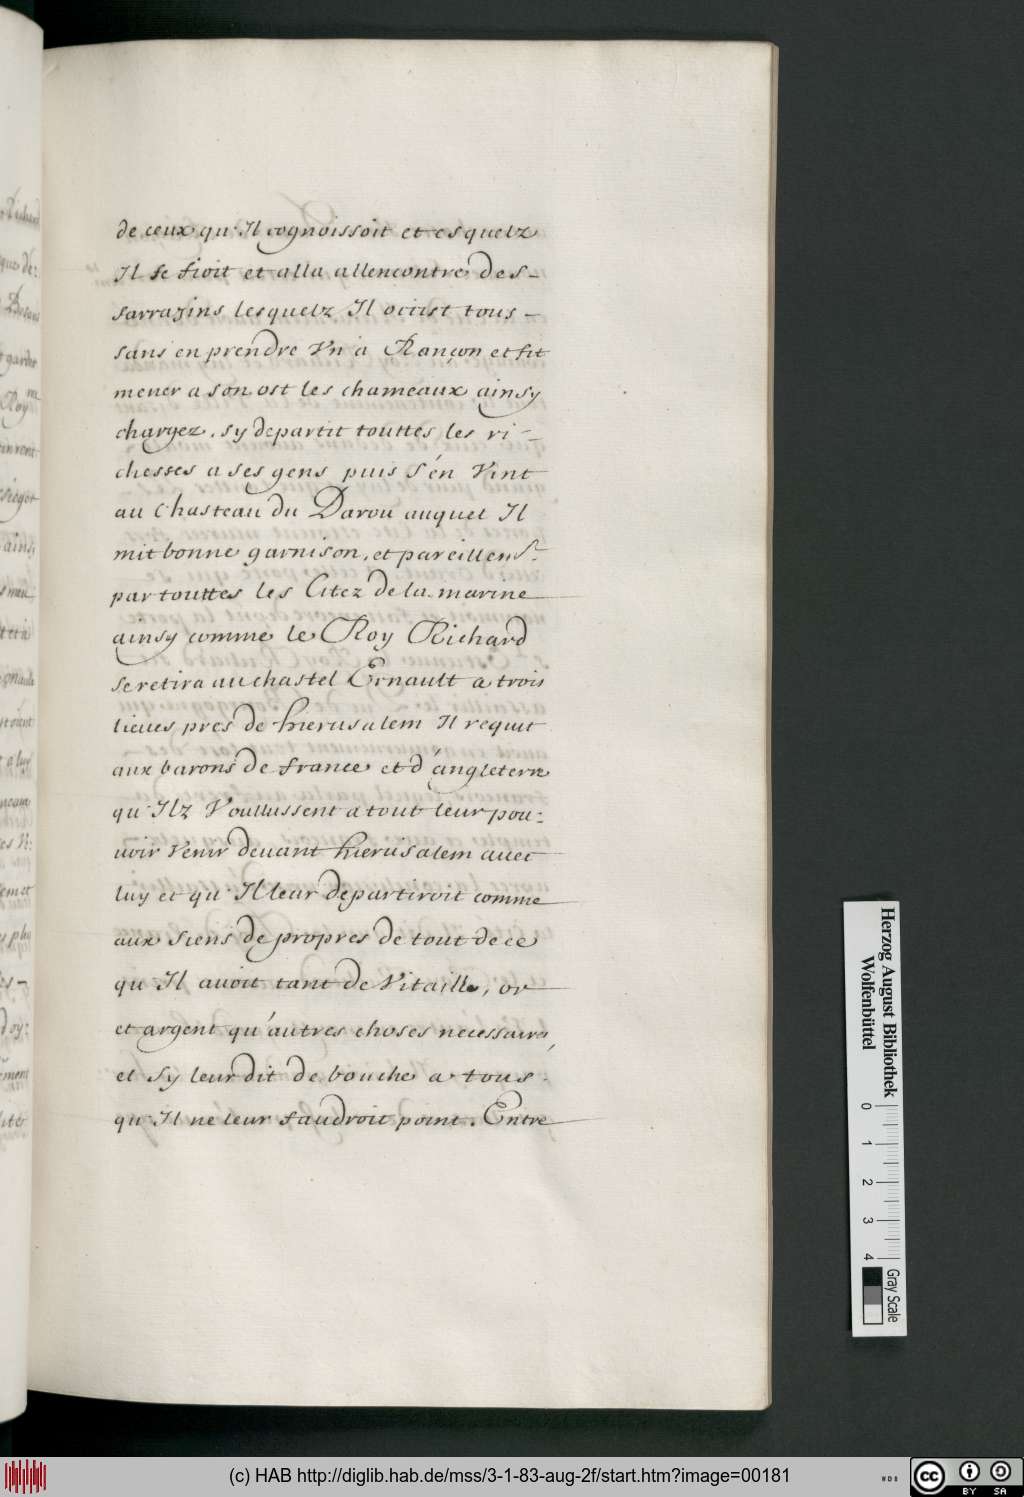 de ceux qu'Il cognoissoit et esquelz
Il se fioit et alla allencontre des-
sarrazins lesquelz Il occist tous-
sans en prendre Vn a Rançon et fit
mener a son ost les chameaux ainsy
chargez, sy departit touttes les ri-
chesses a ses gens puis s'en Vint
au Chasteau du Darou auquel Il
mit bonne garnison, et pareillem.t
par touttes les Citez de la marine
ainsy comme le Roy Richard
se retira au chastel Ernault a trois
lieues pres de hierusalem Il requit
aux barons de france et d'angleterre
qu'Ilz Voullussent a tout leur pou-
uoir Venir deuant hierusalem auec
luy et qu'Il leur departiroit comme
aux siens de propres de tout de ce
qu'Il auoit tant de Vitaille, or
et argent qu'autres choses necessaires,
et sy leur dit de bouche a tous
qu'Il ne leur faudroit point. Entre
Herzog August Bibliothek
Wolfenbüttel
0 1 2 3 4
Gray Scale
(c) HAB http://diglib.hab.de/mss/3-1-83-aug-2f/start.htm?image=00181
cc BY SA